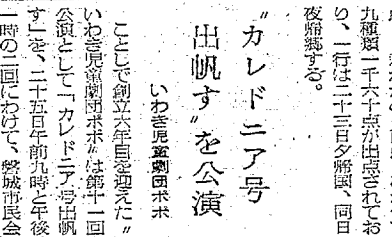 九種類一千六十点が出点されてお
り、一行は二十三日夕帰国、同日
夜帰郷する。
〝カレドニア号
出帆す〟を公演
いわき児童劇団ポポ
ことしで創立六年目を迎えた〝
いわき児童劇団ポポ〟は第十一回
公演として「カレドニア号出帆
す」を、二十五日午前九時と午後
一時の二回にわけて、磐城市民会